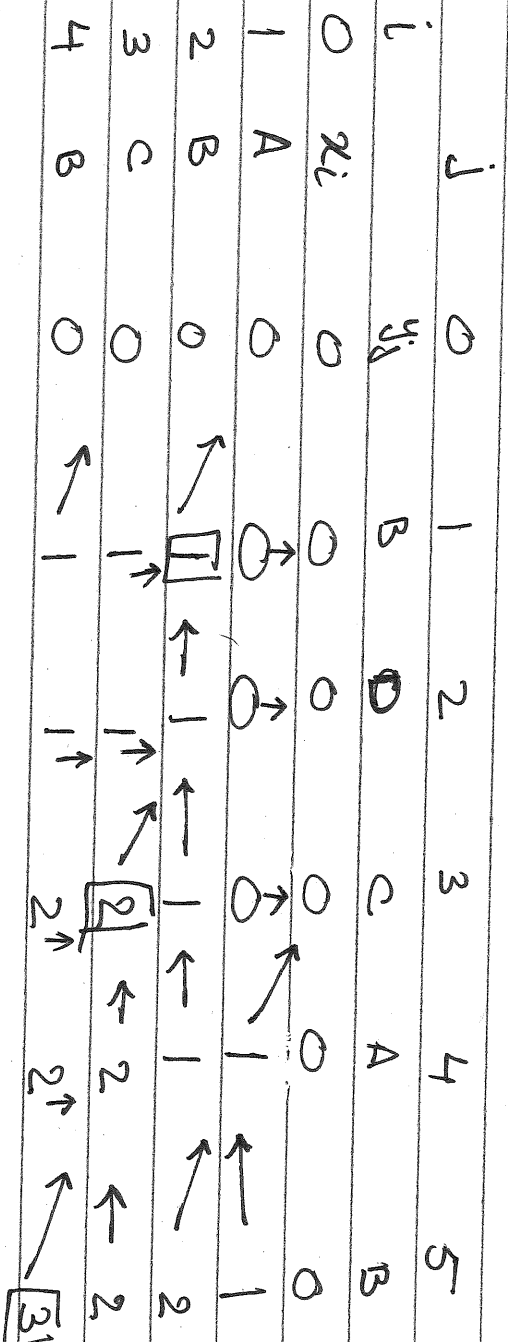 j 0 1 2 3 4 5
i yj B D C A B
0 xi 0 0 0 0 0 0
1 A 0 0↑ 0↑ 0↑ ↖1 ←1
2 B 0 ↖1 ←1 ←1 ←1 ↖2
3 C 0 1↑ 1↑ ↖2 ←2 ←2
4 B 0 ↖1 1↑ 2↑ 2↑ ↖3